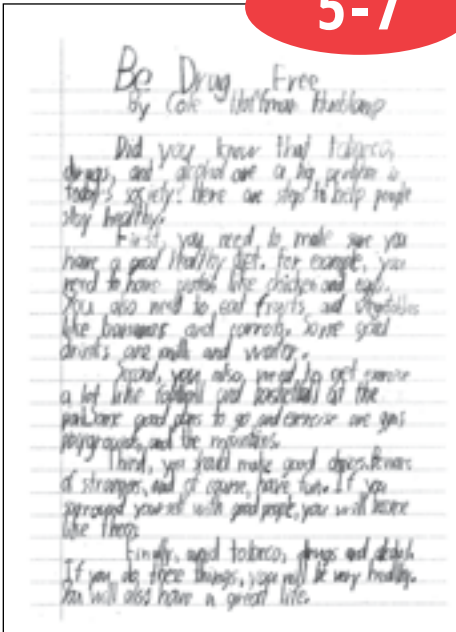 5-7
Be Drug Free
By Cole Hoffman
Did you know that tobacco,
drugs, and alcohol are a big problem in
today's society? Here are steps to help people
stay healthy.
First, you need to make sure you
have a good healthy diet. For example, you
need to have protein like chicken and eggs.
You also need to eat fruits and vegetables
like bananas and carrots. Some good
drinks are milk and water.
Second, you also need to get exercise
a lot like football and basketball at the
park. Some good places to go and exercise are gyms
playgrounds, and the mountains.
Third, you should make good choices. Beware
of strangers, and of course, have fun. If you
surround yourself with good people, you will become
like them.
Finally, avoid tobacco, drugs and alcohol.
If you do these things, you will be very healthy.
You will also have a great life.